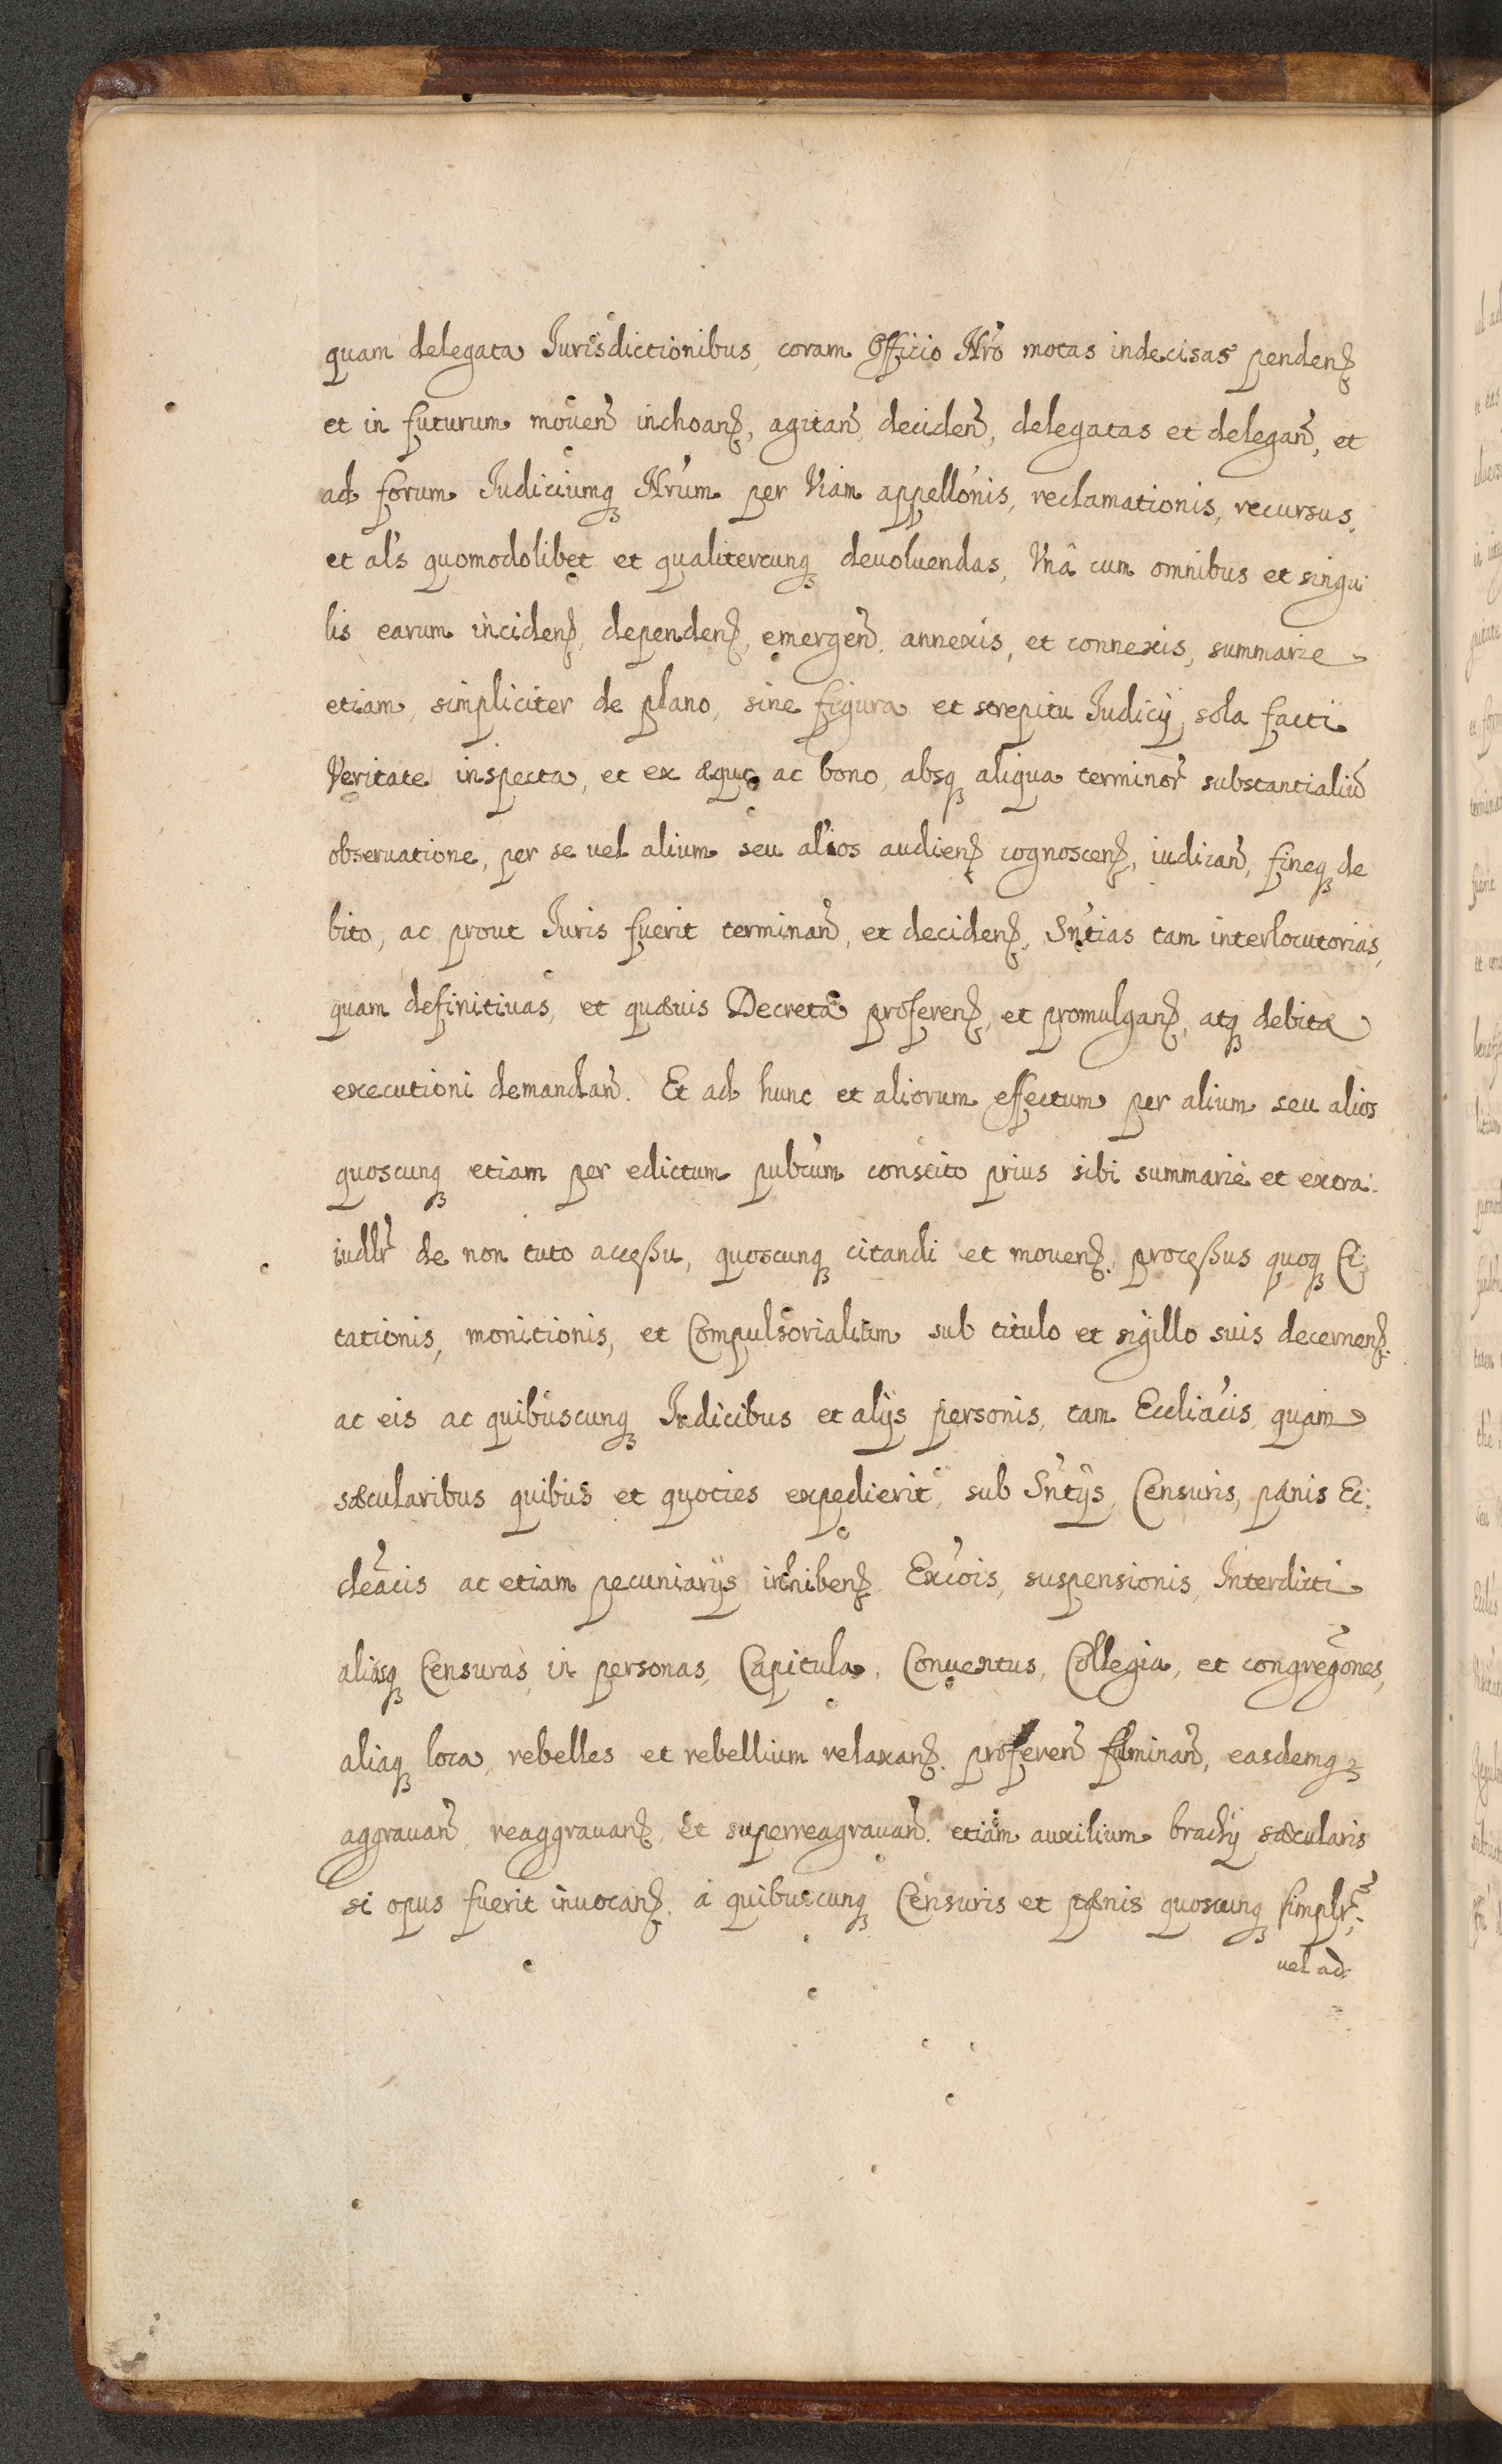 quam delegata Jurisdictionibus, coram Officio Nr̃o motas indecisas pendenꝭ
et in futurum mouen̄ inchoanꝭ, agitan̄, deciden̄, delegatas et delegan̄, et
ad forum Judiciumqꝫ Nr̃um per Viam appellõnis, reclamationis, recursus,
et al̃s quomodolibet et qualitercunqꝫ deuoluendas, Vnâ cum omnibus et singu:
lis earum incidenꝭ, dependenꝭ, emergen̄. annexis, et connexis, summarie
etiam, simpliciter de plano, sine figura et strepitu Judicij, sola facti
Veritate inspecta, et ex æquo ac bono, absqꝫ aliqua terminor̃ substantialiū
obseruatione, per se uel alium seu alios audienꝭ cognoscenꝭ, iudican̄, fineqꝫ de
bito, ac prout Juris fuerit terminan̄, et decidenꝭ, Sñtias tam interlocutorias,
quam definitiuas, et quæuis Decreta proferenꝭ, et promulganꝭ, atqꝫ debitæ
executioni demandan̄. Et ad hunc et aliorum effectum per alium seu alios
quoscunqꝫ etiam per edictum publ̃cum constito prius sibi summariè et extra:
iudl̃r de non tuto accessu, quoscunqꝫ citandi et mouenꝭ, processus quoqꝫ Ci:
tationis, monitionis, et Compulsorialium sub titulo et sigillo suis decernenꝭ.
ac eis ac quibuscunqꝫ Judicibus et alijs personis, tam Eccliãcis, quam
sæcularibus quibus et quoties expedierit, sub Sñtijs, Censuris, pænis Ec:
cleãcis ac etiam pecuniarijs inhibenꝭ. Excõis, suspensionis, Interdicti
aliasqꝫ Censuras, in personas, Capitula, Conuentus, Collegia, et congregõnes,
aliaqꝫ loca, rebelles et rebellium relaxanꝭ. proferen̄ fulminan̄, easdemqꝫ
aggrauan̄, reaggrauanꝭ, et superreagrauan̄. etiam auxilium brachij sæcularis
si opus fuerit inuocanꝭ. à quibuscunqꝫ Censuris et pænis quoscunqꝫ simplr̃,
uel ad: